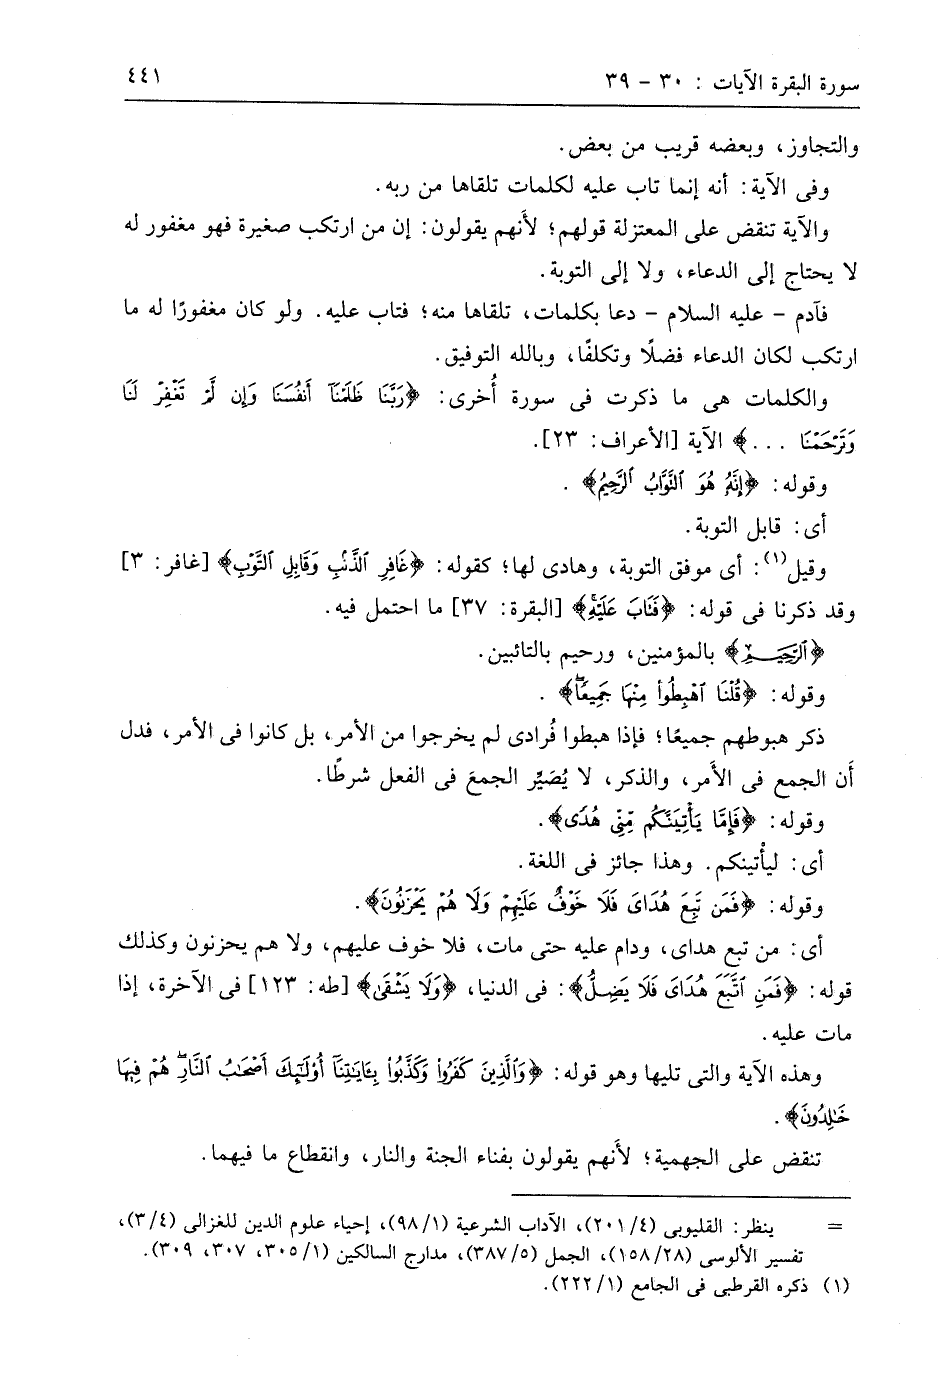 سورة البقرة الآيات : ٣٠ – ٣٩ ٤٤١
والتجاوز، وبعضه قريب من بعض.
وفى الآية: أنه إنما تاب عليه لكلمات تلقاها من ربه.
والآية تنقض على المعتزلة قولهم؛ لأنهم يقولون: إن من ارتكب صغيرة فهو مغفور له
لا يحتاج إلى الدعاء، ولا إلى التوبة.
فآدم – عليه السلام – دعا بكلمات، تلقاها منه؛ فتاب عليه. ولو كان مغفورًا له ما
ارتكب لكان الدعاء فضلًا وتكلفًا، وبالله التوفيق.
والكلمات هى ما ذكرت فى سورة أُخرى: ﴿رَبَّنَا ظَلَمْنَآ أَنفُسَنَا وَإِن لَّمْ تَغْفِرْ لَنَا
وَتَرْحَمْنَا ...﴾ الآية [الأعراف: ٢٣].
وقوله: ﴿إِنَّهُ هُوَ ٱلتَّوَّابُ ٱلرَّحِيمُ﴾ .
أى: قابل التوبة.
وقيل(١): أى موفق التوبة، وهادى لها؛ كقوله: ﴿غَافِرِ ٱلذَّنۢبِ وَقَابِلِ ٱلتَّوْبِ﴾ [غافر: ٣]
وقد ذكرنا فى قوله: ﴿فَتَابَ عَلَيْهِ﴾ [البقرة: ٣٧] ما احتمل فيه.
﴿ٱلرَّحِيمُ﴾ بالمؤمنين، ورحيم بالتائبين.
وقوله: ﴿قُلْنَا ٱهْبِطُوا۟ مِنْهَا جَمِيعًا﴾ .
ذكر هبوطهم جميعًا؛ فإذا هبطوا فُرادى لم يخرجوا من الأمر، بل كانوا فى الأمر، فدل
أَن الجمع فى الأَمر، والذكر، لا يُصَيِّر الجمعَ فى الفعل شرطًا.
وقوله: ﴿فَإِمَّا يَأْتِيَنَّكُم مِّنِّى هُدًى﴾.
أى: ليأْتينكم. وهذا جائز فى اللغة.
وقوله: ﴿فَمَن تَبِعَ هُدَاىَ فَلَا خَوْفٌ عَلَيْهِمْ وَلَا هُمْ يَحْزَنُونَ﴾.
أى: من تبع هداى، ودام عليه حتى مات، فلا خوف عليهم، ولا هم يحزنون وكذلك
قوله: ﴿فَمَنِ ٱتَّبَعَ هُدَاىَ فَلَا يَضِلُّ﴾: فى الدنيا، ﴿وَلَا يَشْقَىٰ﴾ [طه: ١٢٣] فى الآخرة، إذا
مات عليه.
وهذه الآية والتى تليها وهو قوله: ﴿وَٱلَّذِينَ كَفَرُوا۟ وَكَذَّبُوا۟ بِـَٔايَـٰتِنَآ أُو۟لَـٰٓئِكَ أَصْحَـٰبُ ٱلنَّارِ هُمْ فِيهَا
خَـٰلِدُونَ﴾.
تنقض على الجهمية؛ لأَنهم يقولون بفناء الجنة والنار، وانقطاع ما فيهما.
= ينظر: القليوبى (٢٠١/٤)، الآداب الشرعية (٩٨/١)، إحياء علوم الدين للغزالى (٣/٤)،
تفسير الألوسى (١٥٨/٢٨)، الجمل (٣٨٧/٥)، مدارج السالكين (٣٠٥/١، ٣٠٧، ٣٠٩).
(١) ذكره القرطبى فى الجامع (٢٢٢/١).